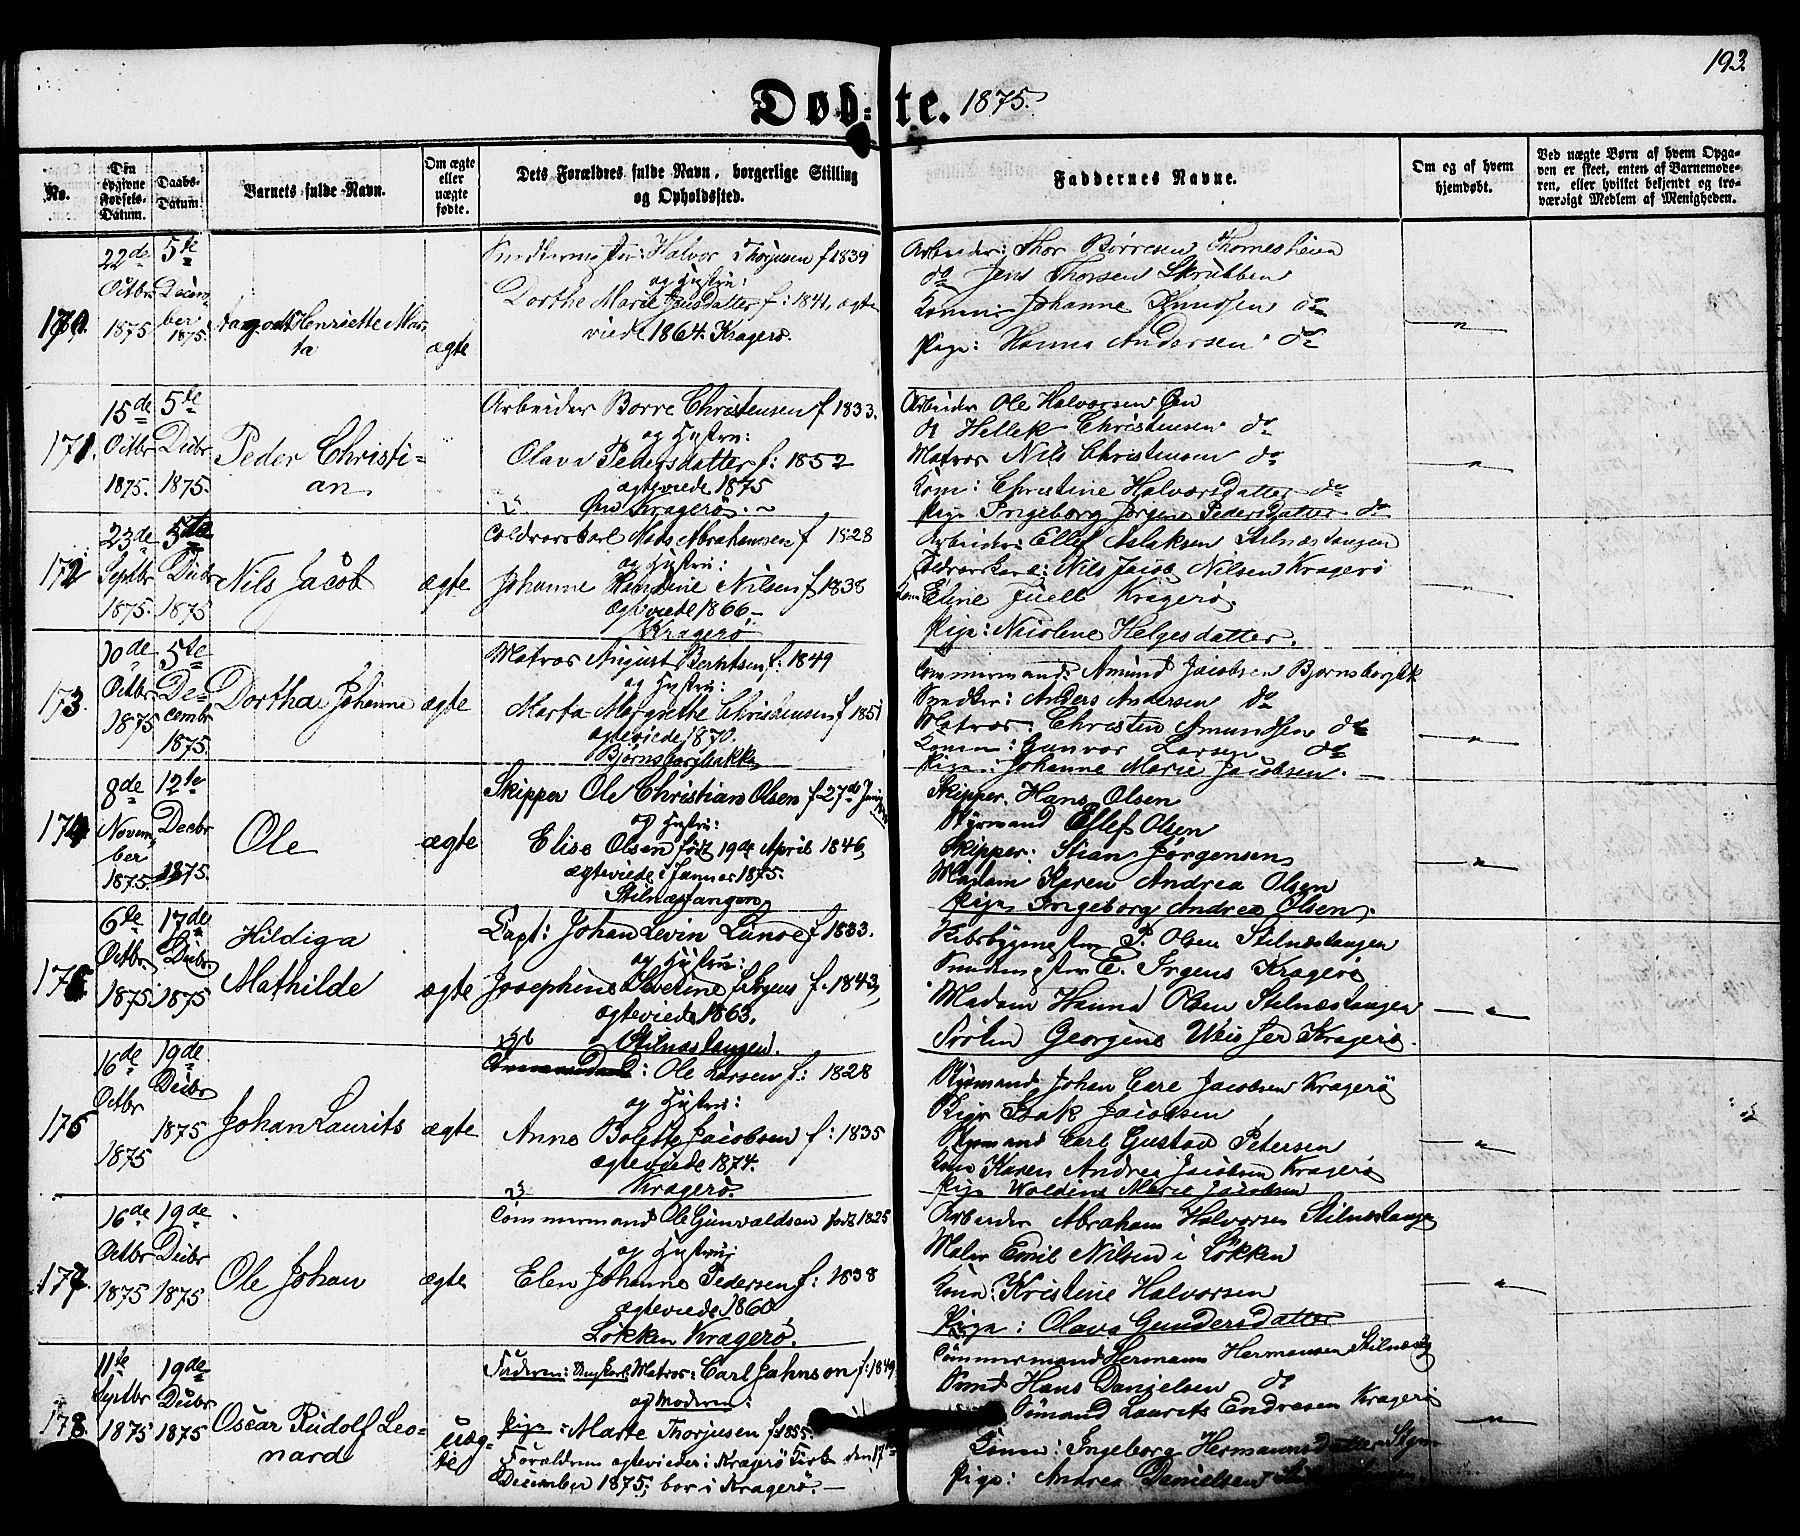 193
Døb=te. 1875.
No.
Den opgivne Fødsels-Datum.
Daabs-Datum.
Barnets fulde Navn.
Om ægte eller uægte fødte.
Dets Forældres fulde Navn, borgerlige Stilling og Opholdssted.
Faddernes Navne.
Om og af hvem hjemdøbt.
Ved uægte Børn af hvem Opgaven er skeet, enten af Barnemoderen, eller hvilket bekjendt og troværdigt Medlem af Menigheden.
170.
22de Octbr 1875
5te December 1875.
Aagodt Henriette Marta
ægte
Halvor Thorjusen f 1839
og Hustru:
Dorthe Marie Jensdatter f: 1841, ægte
viede 1864. Kragerø.
Arbeider: Thor Børresen
do Jens Thorsen Skrubben
Johanne Knudsen do
Pige: Hanna Andersen do
"
171.
15de Octbr 1875.
5te Decbr 1875.
Peder Christian
Arbeider Børre Christensen f 1833.
og Hustru:
Olava Pedersdatter f: 1852
ægteviede 1875
Øen Kragerø. ~
Arbeider Ole Halvorsen Øen
do Hellek Christensen do
Matros Nils Christensen do
Kone: Christine Halvorsdatter do
Pige Ingeborg Jørgine Pedersdatter do
"
172
23de Septbr 1875.
5te Decbr 1875
Nils Jacob
ægte
Toldroerskarl Mads Abrahamsen f 1828
og Hustru:
Johanne Nilsen f 1838
ægteviede 1866 –
Kragerø
Arbeider: Ellef Aslaksen Stilnæstangen
Nils Jacob Nilsen Kragerø
Kone Eline Juell Kragerø
Pige: Nicoline Helgesdatter.
"
173.
10de Octbr 1875
5te December 1875.
Dortha Johanne
ægte
Matros August Berntsen f: 1849
og Hustru:
Marta Margrethe Christensen f 1851
ægteviede 1870.
Bjørnsbergbakken
Tømmermand: Amund Jacobsen Bjørnsbergbk
Snedker: Anders Andersen do
Matros: Christen Amundsen do
Kone: Gunvor Larsen do
Pige: Johanne Marie Jacobsen. –
"
174
8de November 1875.
12te Decbr 1875.
Ole
ægte
Skipper Ole Christian Olsen f 27de Juni
og Hustru:
Elise Olsen født 19de April 1846,
ægteviede i Januar 1875.
Stilnæstangen
Skipper. Hans Olsen
Styrmand Ellef Olsen
Skipper: Stian Jørgensen
Madam Karen Andrea Olsen
Pige Ingeborg Andrea Olsen.
"
175
6te Octbr. 1875.
17de Decbr 1875
Hildiga
Mathilde
ægte
Capt: Johan Levin Lunoe f 1833.
og Hustru:
Josephine Severine Irgens f. 1843,
ægteviede 1863.
Stilnæstangen.
Skibsbygmester P. Olsen Stilnæstangen
E. Irgens Kragerø
Madam Hanna Olsen Stilnæstangen
Frøken Georgine Kragerø.
"
176
16de Octbr 1875
19de Decbr 1875
Johan Laurits
ægte
Ole Larsen f: 1828
og Hustru:
Anne Bolette Jacobsen f: 1835
ægteviede 1874.
Kragerø.
Styrmand Johan Carl Jacobsen Kragerø
Isak Jacobsen
Styrmand Carl Gustav Petersen
Kone Karen Andrea Jacobsen Kragerø
Pige Woldine Marie Jacobsen
"
177.
16de Octbr 1875
19de Decbr 1875
Ole Johan
ægte
Tømmermand Ole Gunvaldsen født 1825
og Hustru;
Elen Johanne Pedersen f: 1838
ægteviede 1860,
Løkken Kragerø.
Arbeider Abraham Halvorsen Stilnæstangen
Maler Emil Nilsen i Løkken
Kone: Kristine Halvorsen
Pige: Olava Gundersdatter
"
178.
11te Septbr 1875
19de Decbr 1875
Oscar Rudolf Leonard
uægte
Faderen: Ungkarl Matros: Carl Jahnson f: 1849
og Moderen:
Pige: Marte Thorjusen f 1855.
Forældrene ægteviede i Kragerø Kirke den 17
December 1875; bor i Kragerø. –
Tømmermand Hermann Hermansen
Hans Danielsen do
Sømand Laurits Endresen Kragerø
Kone: Ingeborg Hermannsdatter
Pige: Andrea Danielsen
"